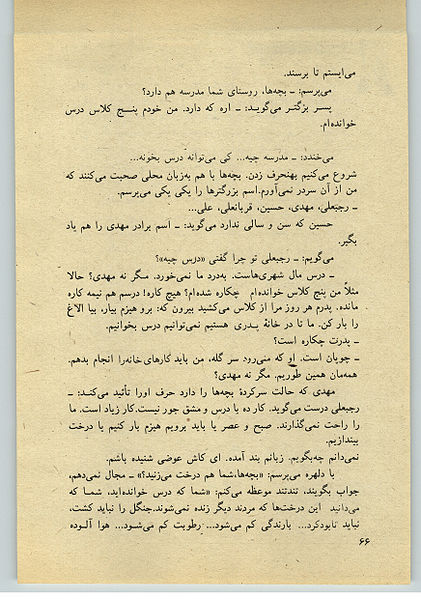 می‌ایستم تا برسند.
می‌پرسم: ـ بچه‌ها، روستای شما مدرسه هم دارد؟
پسر بزرگتر می‌گوید: ـ اره که دارد. من خودم پنج کلاس درس
خوانده‌ام.
می‌خندد: ـ مدرسه چیه... کی می‌توانه درس بخونه...
شروع می‌کنیم به‌حرف زدن. بچه‌ها با هم به‌زبان محلی صحبت می‌کنند که
من از آن سردر نمی‌آورم. اسم بزرگترها را یکی یکی می‌پرسم.
ـ رجبعلی، مهدی، حسین، قربانعلی، علی...
حسین که سن و سالی ندارد می‌گوید: ـ اسم برادر مهدی را هم یاد
بگیر.
می‌گویم: ـ رجبعلی تو چرا گفتی «درس چیه»؟
ـ درس مال شهری‌هاست. به‌درد ما نمی‌خورد. مگر نه مهدی؟ حالا
مثلاً من پنج کلاس خوانده‌ام چکاره شده‌ام؟ هیچ کاره! درسم هم نیمه کاره
مانده. پدرم هر روز مرا از کلاس می‌کشید بیرون که: برو هیزم بیار، بیا الاغ
را بار کن. ما تا در خانهٔ پدری هستیم نمی‌توانیم درس بخوانیم.
ـ پدرت چکاره است؟
ـ چوپان است. او که می‌رود سر گله، من باید کارهای خانه را انجام بدهم.
همه‌مان همین طوریم. مگر نه مهدی؟
مهدی که حالت سرکردهٔ بچه‌ها را دارد حرف اورا تأئید می‌کند: ـ
رجبعلی درست می‌گوید. کار ده با درس و مشق جور نیست. کار زیاد است. ما
را راحت نمی‌گذارند. صبح و عصر یا باید برویم هیزم بار کنیم یا درخت
بیندازیم.
نمی‌دانم چه‌بگویم. زبانم بند آمده. ای کاش عوضی شنیده باشم.
با دلهره می‌پرسم: «بچه‌ها، شما هم درخت می‌زنید؟» ـ مجال نمی‌دهم،
جواب بگویند، تندتند موعظه می‌کنم: «شما که درس خوانده‌اید، شما که
می‌دانید این درخت‌ها که مردند دیگر زنده نمی‌شوند. جنگل را نباید کشت،
نباید نابودکرد... بارندگی کم می‌شود... رطوبت کم می‌شود... هوا آلوده
۶۶